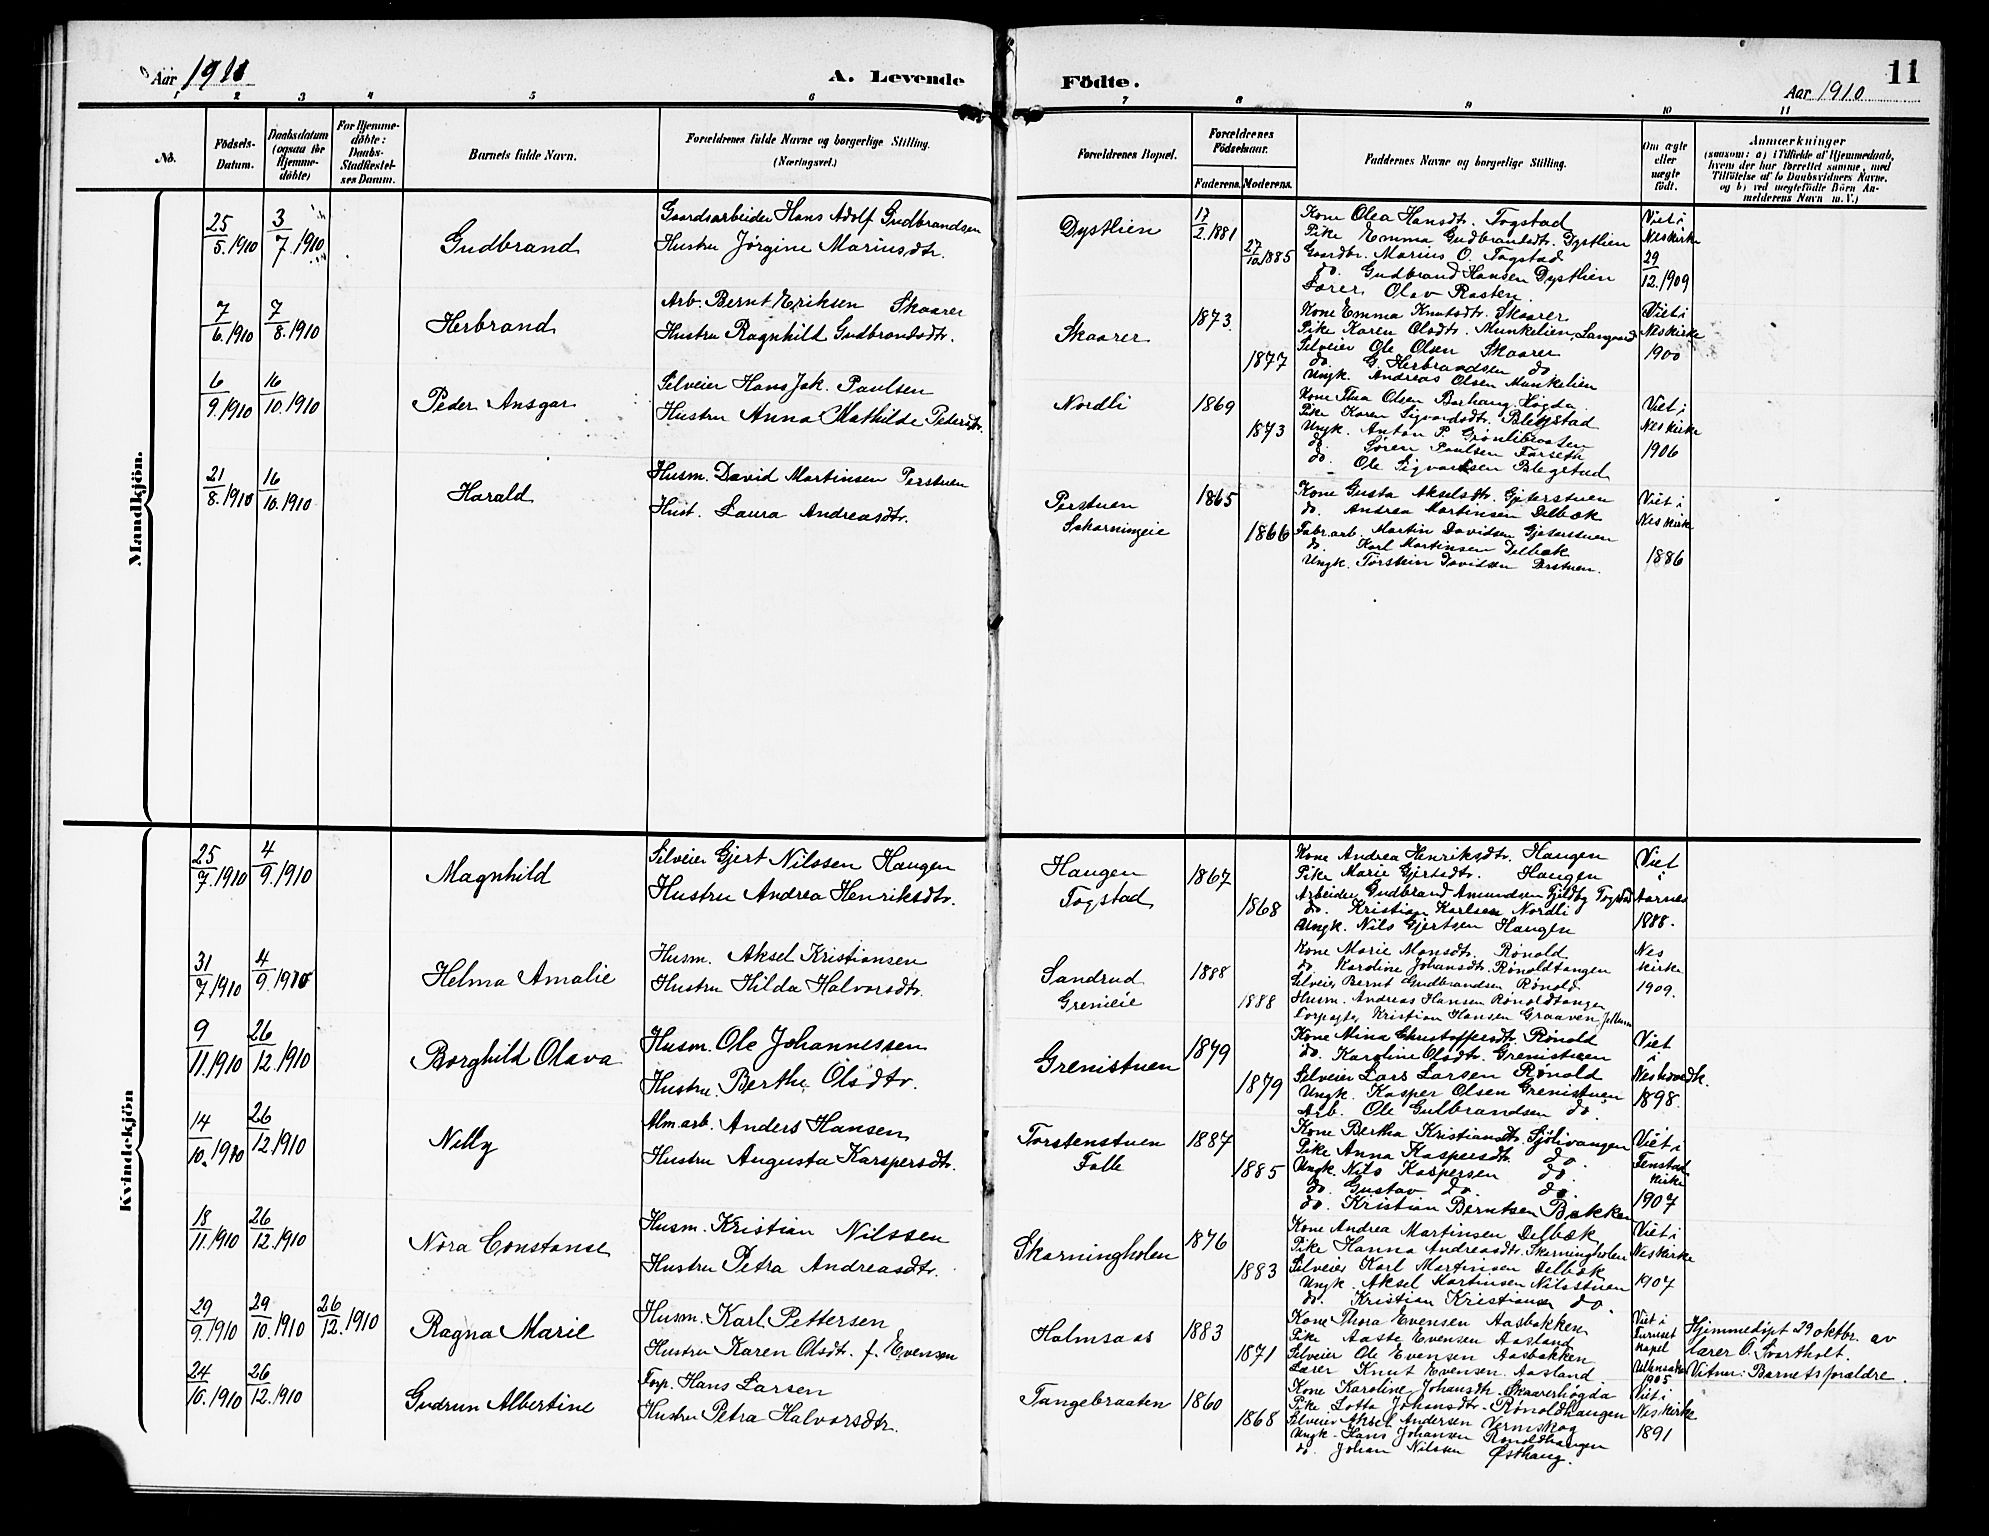 Aar 1910
A. Levende
Födte.
11
Aar 1910
1 2 3 4 5 6 7 8 9 10 11
No.
Födsels-
Datum.
Daabsdatum
(ogsaa for
Hjemme-
döbte)
For Hjemme-
döbte:
Daabs-
Stadfæstel-
ses Datum.
Barnets fulde Navn.
Forældrenes fulde Navne og borgerlige Stilling.
(Næringsvei.)
Forældrenes Bopæl.
Forældrenes
Födselsaar.
Faderens. Moderens.
Faddernes Navne og borgerlige Stilling.
Om ægte
eller
uægte
födt.
Anmærkninger
(saasom: a) i Tilfælde af Hjemmedaab,
hvem der har forrettet samme, med
Tilföielse af to Daabsvidners Navne.
og b) ved uægtefödte Börn An-
melderens Navn m. V.)
Mandkjön.
25/5.1910 3/7.1910
Gudbrand
Gaardsarbeider Hans Adolf Gudbrandsen
Hustru Jørgine Mariusdtr.
Dystlien
17/2.1881
27/10 1885
Kone Olea Hansdtr. Togstad
Pike Emma Gudbrandsdtr. Dystlien
Gaardbr. Marius O. Togstad
do. Gudbrand Hansen Dystlien
Lærer Olav Rasten.
Viet i
Nes kirke
29/12.1909
7/6.1910 7/8.1910
Herbrand
Arb. Bernt Eriksen Skaarer
Hustru Ragnhild Gudbrandsdtr.
Skaarer
1873.
1877
Kone Emma Knutsdtr. Skaarer
Pike Karen Olsdtr. Munkelien, Langvad
Selveier Ole Olsen Skaarer
do G. Herbrandsen do
Ungk. Andreas Olsen Munkelien
Viet i
Nes kirke
1900
6/9.1910 16/10.1910
Peder Ansgar
Selveier Hans Jak. Paulsen
Hustru Anna Mathilde Pedersdtr.
Nordli
1869
1873
Kone Thea Olsen Berhaug Høgda
Pike Karen Sigvardsdtr. Blegstad
Ungk. Anton P. Grønlibraaten
do. Søren Paulsen Farseth
do. Ole Sigvartsen Blegstad
Viet i
Nes kirke
1906
21/8.1910 16/10.1910
Harald
Husm. David Martinsen Perstuen
Hust. Laura Andreasdtr.
Perstuen
Skarningeie
1865
1866
Kone Gusta Akselsdtr. Gjeterstuen
do. Andrea Martinsen Delbæk
Fabr.arb. Martin Davidsen Gjeterstuen
do. Karl Martinsen Delbæk
Ungk. Torstein Davidsen Perstuen.
Viet i
Nes kirke
1886
Kvindekjön
25/7.1910 4/9.1910
Magnhild
Selveier Gjert Nilssen Haugen
Hustru Andrea Henriksdtr.
Haugen
Togstad
1867
1868
Kone Andrea Henriksdtr. Haugen
Pike Marie Gjertsdtr. Haugen
Arbeider Gudbrand Amundsen Fjeldby Togstad
do. Kristian Karlsen Nordli
Ungk. Nils Gjertsen Haugen
Viet
i
Aarnes
1888.
31/7.1910 4/9.1910
Helma Amalie
Husm. Aksel Kristiansen
Hustru Hilda Halvorsdtr.
Sandrud
Grenieie
1888
1888
Kone Marie Monsdtr. Rønold
do. Karoline Johansdtr. Rønoldtangen
Selveier Bernt Gudbrandsen Rønold.
Husm. Andreas Hansen Rønoldtangen
Torpagter Kristian Hansen Graaven,
Nes
kirke
1909.
9/11.1910 26/12.1910
Borghild Olava
Husm. Ole Johannessen
Hustru Berthe Olsdtr.
Grenistuen
1879
1879
Kone Mina Christoffersdtr. Rønold
do. Karoline Olsdtr. Grenistuen
Selveier Lars Larsen Rønold
Ungk. Kasper Olsen Grenistuen
Arb. Ole Gulbrandsen do.
Viet
i
Nes hovedk.
1898.
14/10.1910 26/12.1910
Nelly
Alm.arb. Anders Hansen
Hustru Augusta Karspersdtr.
Torstenstuen
Folle
1887
1885
Kone Bertha Kristiansdtr. Sjølivangen
Pike Anna Kaspersdtr. do.
Ungk. Nils Kaspersen do.
do. Gustav do. do.
do. Kristian Berntsen Bakken
Viet i
Fenstad
kirke
1907
18/11.1910 26/12.1910
Nora Constanse
Husm. Kristian Nilssen
Hustru Petra Andreasdtr.
Skarningholen
1876
1883
Kone Andrea Martinsen Delbæk
Pike Hanna Andreasdtr. Skarningholen
Selveier Karl Martinsen Delbæk
Ungk. Aksel Martinsen Nilsstuen
do. Kristian Kristiansen do.
Viet i
Nes kirke
1907
29/9.1910 29/10.1910 26/12.1910
Ragna Marie
Husm. Karl Pettersen
Hustru Karen Olsdt. f. Evensen
Holmsaas
1883
1871
Kone Thora Evensen Aasbakken
Pike Aaste Evensen Aasland
Selveier Ole Evensen Aasbakken
Lærer Knut Evensen Aasland
Viet i
Furuset
kapel
Ullensaker
1905
Hjemmedøpt 29 oktbr. av
lærer O. Svartholt.
Vitner: Barnets forældre.
24/10.1910 26/12.1910
Gudrun Albertine
Torp. Hans Larsen
Hustru Petra Halvorsdtr.
Tangebraaten
1860
1868
Kone Karoline Johansdtr. Skaarerhøgda
Pike Lotta Johansdtr. Rønoldhaugen
Selveier Aksel Andersen Vermskog
Ungk. Hans Johansen Rønoldhaugen
do. Johan Nilssen Østhaug.
Viet i
Nes kirke
1891